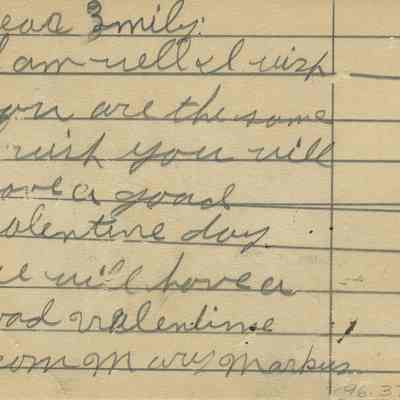 ear Emily:
am well & I wish
you are the same
wish you will
ave a good
alentine day.
e will have a
ood valentine
rom Mary Markus.
96.37